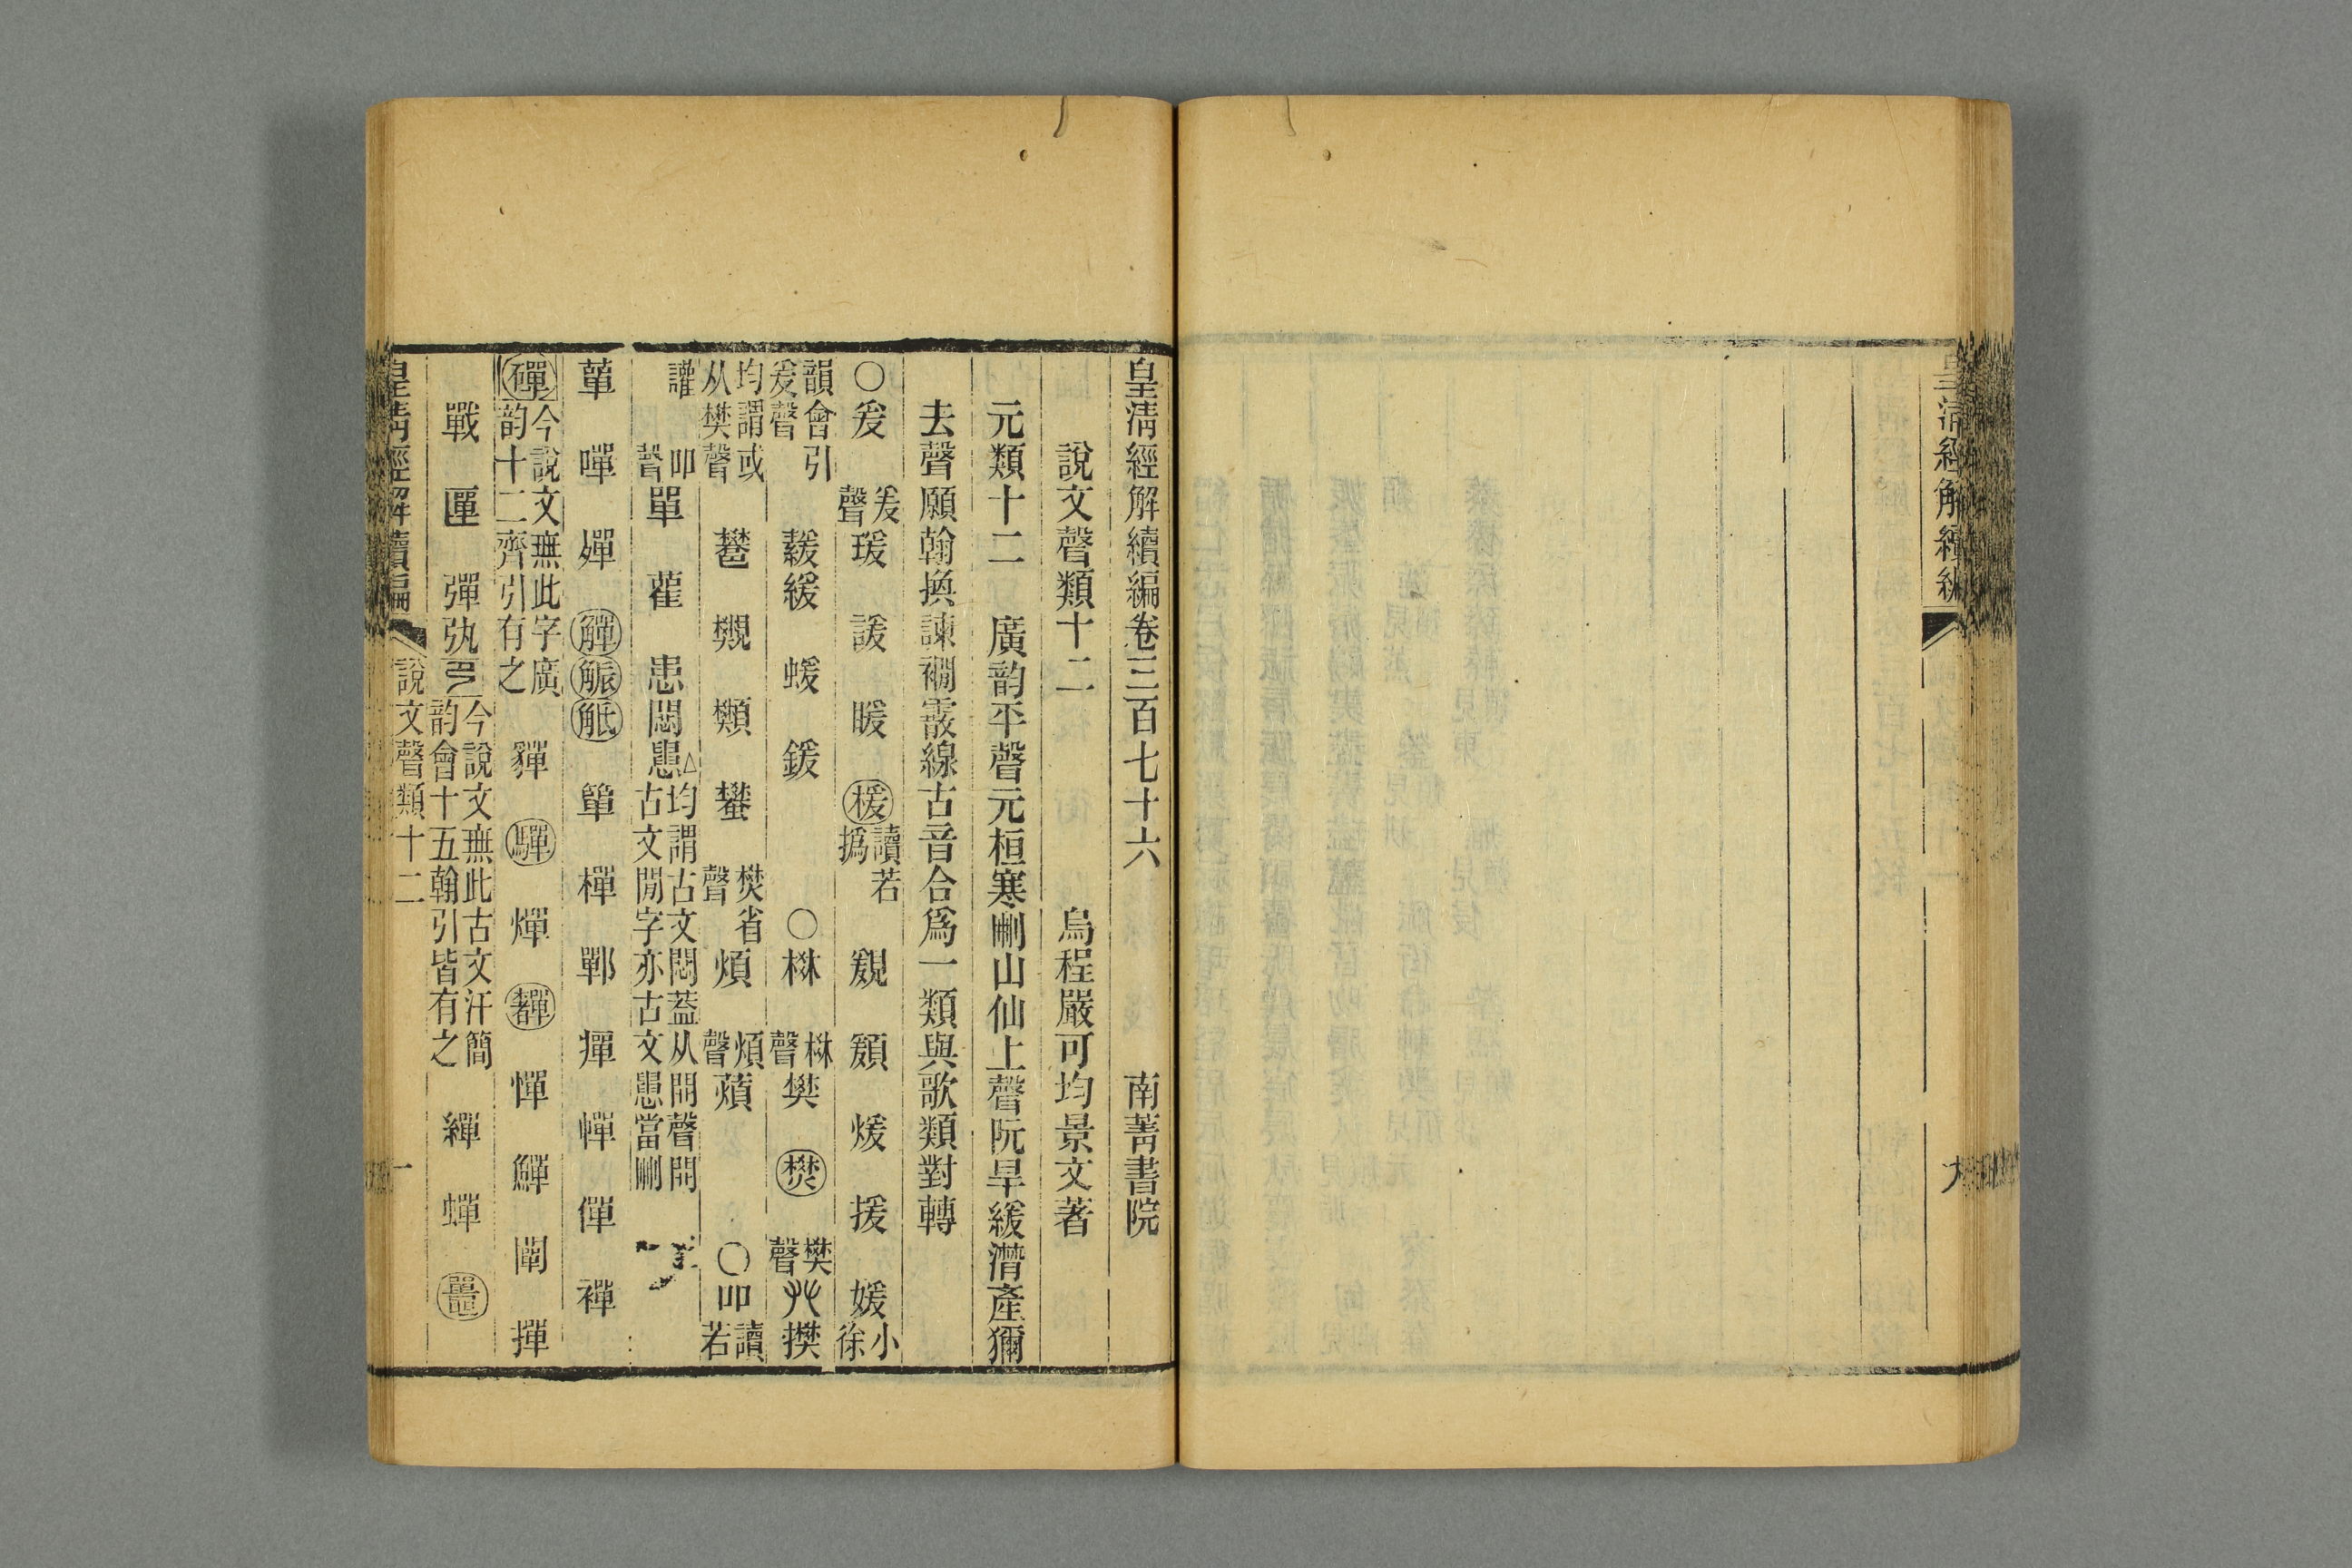 皇清經解續編
九
皇清經解續編卷三百七十六 南菁書院
說文聲類十二 烏程嚴可均景文著
元類十二 廣韵平聲元桓寒刪山仙上聲阮旱緩潸產獮
去聲願翰換諫襉霰線古音合爲一類與歌類對轉
〇爰 爰聲 瑗 諼 暖 楥 讀若撝 覣 䫟 煖 援 媛 小徐
韻會引爰聲 蕿緩 蝯 鍰 〇棥 棥聲 樊 㷊 樊聲 𠬜 㩯
均謂或从樊聲 鷭 𧢜 䫶 蠜 樊省聲 煩 煩聲 薠 〇吅 讀若
讙 吅聲 單 雚 患 悶 𢤶 均謂古文悶蓋从閒聲閒古文閒字亦古文𢤶當刪
蕇 嘽 嬋 觶 䚨 觗 簞 樿 鄲 癉 幝 僤 襌
磾 今說文無此字廣韵十二齊引有之 貚 驒 燀 奲 憚 鱓 闡 撣
戰 匰 彈𢎫 今說文無此古文汗簡韵會十五翰引皆有之 繟 蟬 鼉
皇清經解續編 說文聲類十二 一